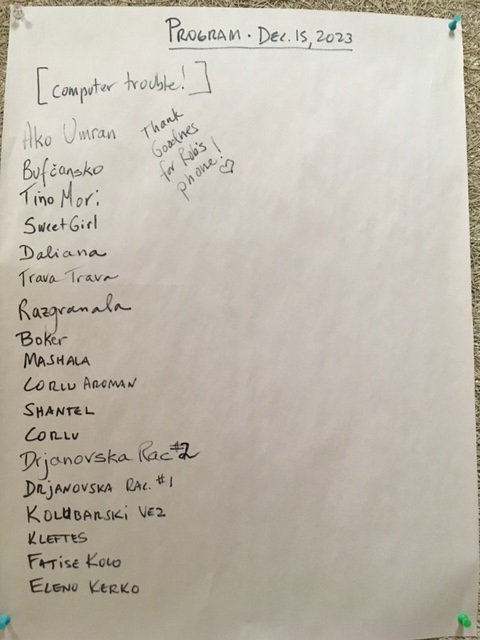 PROGRAM · DEC. 15, 2023
[computer trouble!]
Ako Umran
Thank
Goodnes
for Rob's
phone! ♡
Bufčansko
Tino Mori
SweetGirl
Daliana
Trava Trava
Razgranala
Boker
MASHALA
CORLU AROMAN
SHANTEL
CORLU
Drjanovska Rac #2
DRJANOVSKA RAC. #1
KOLUBARSKI VEZ
KLEFTES
FATISE KOLO
ELENO KERKO